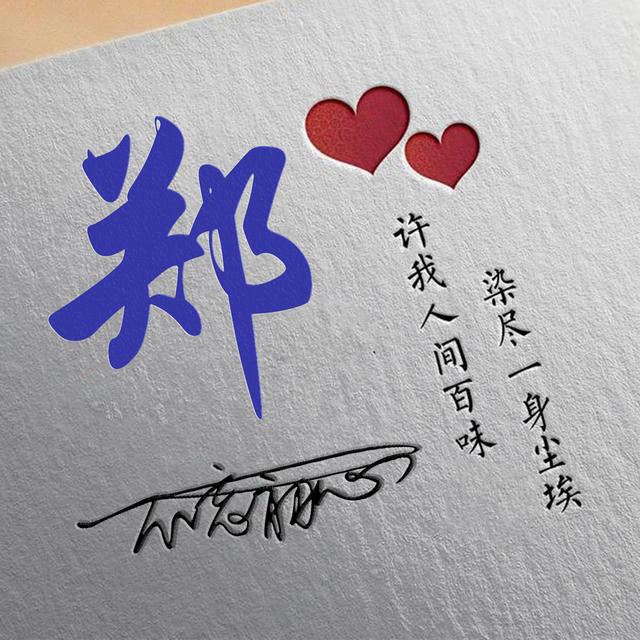 郑
许我人间百味
染尽一身尘埃